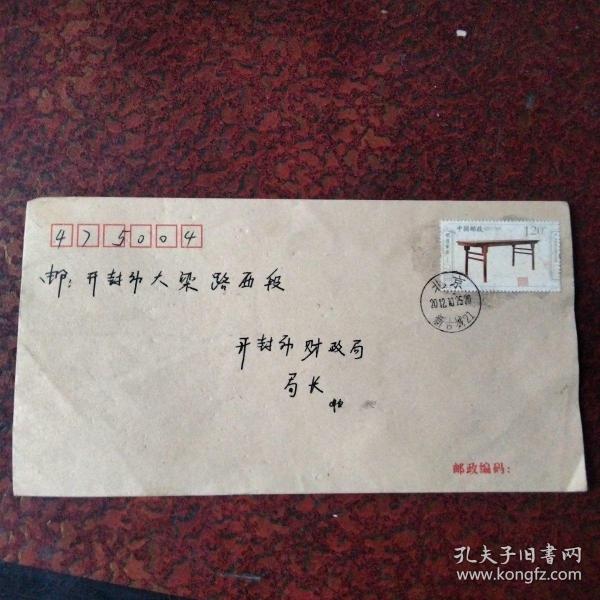 475004
中国邮政
1.20元
邮：开封市大梁路西段
北京
2012.10.25.20
开封市财政局
局长
邮政编码：
孔夫子旧书网
www.kongfz.com